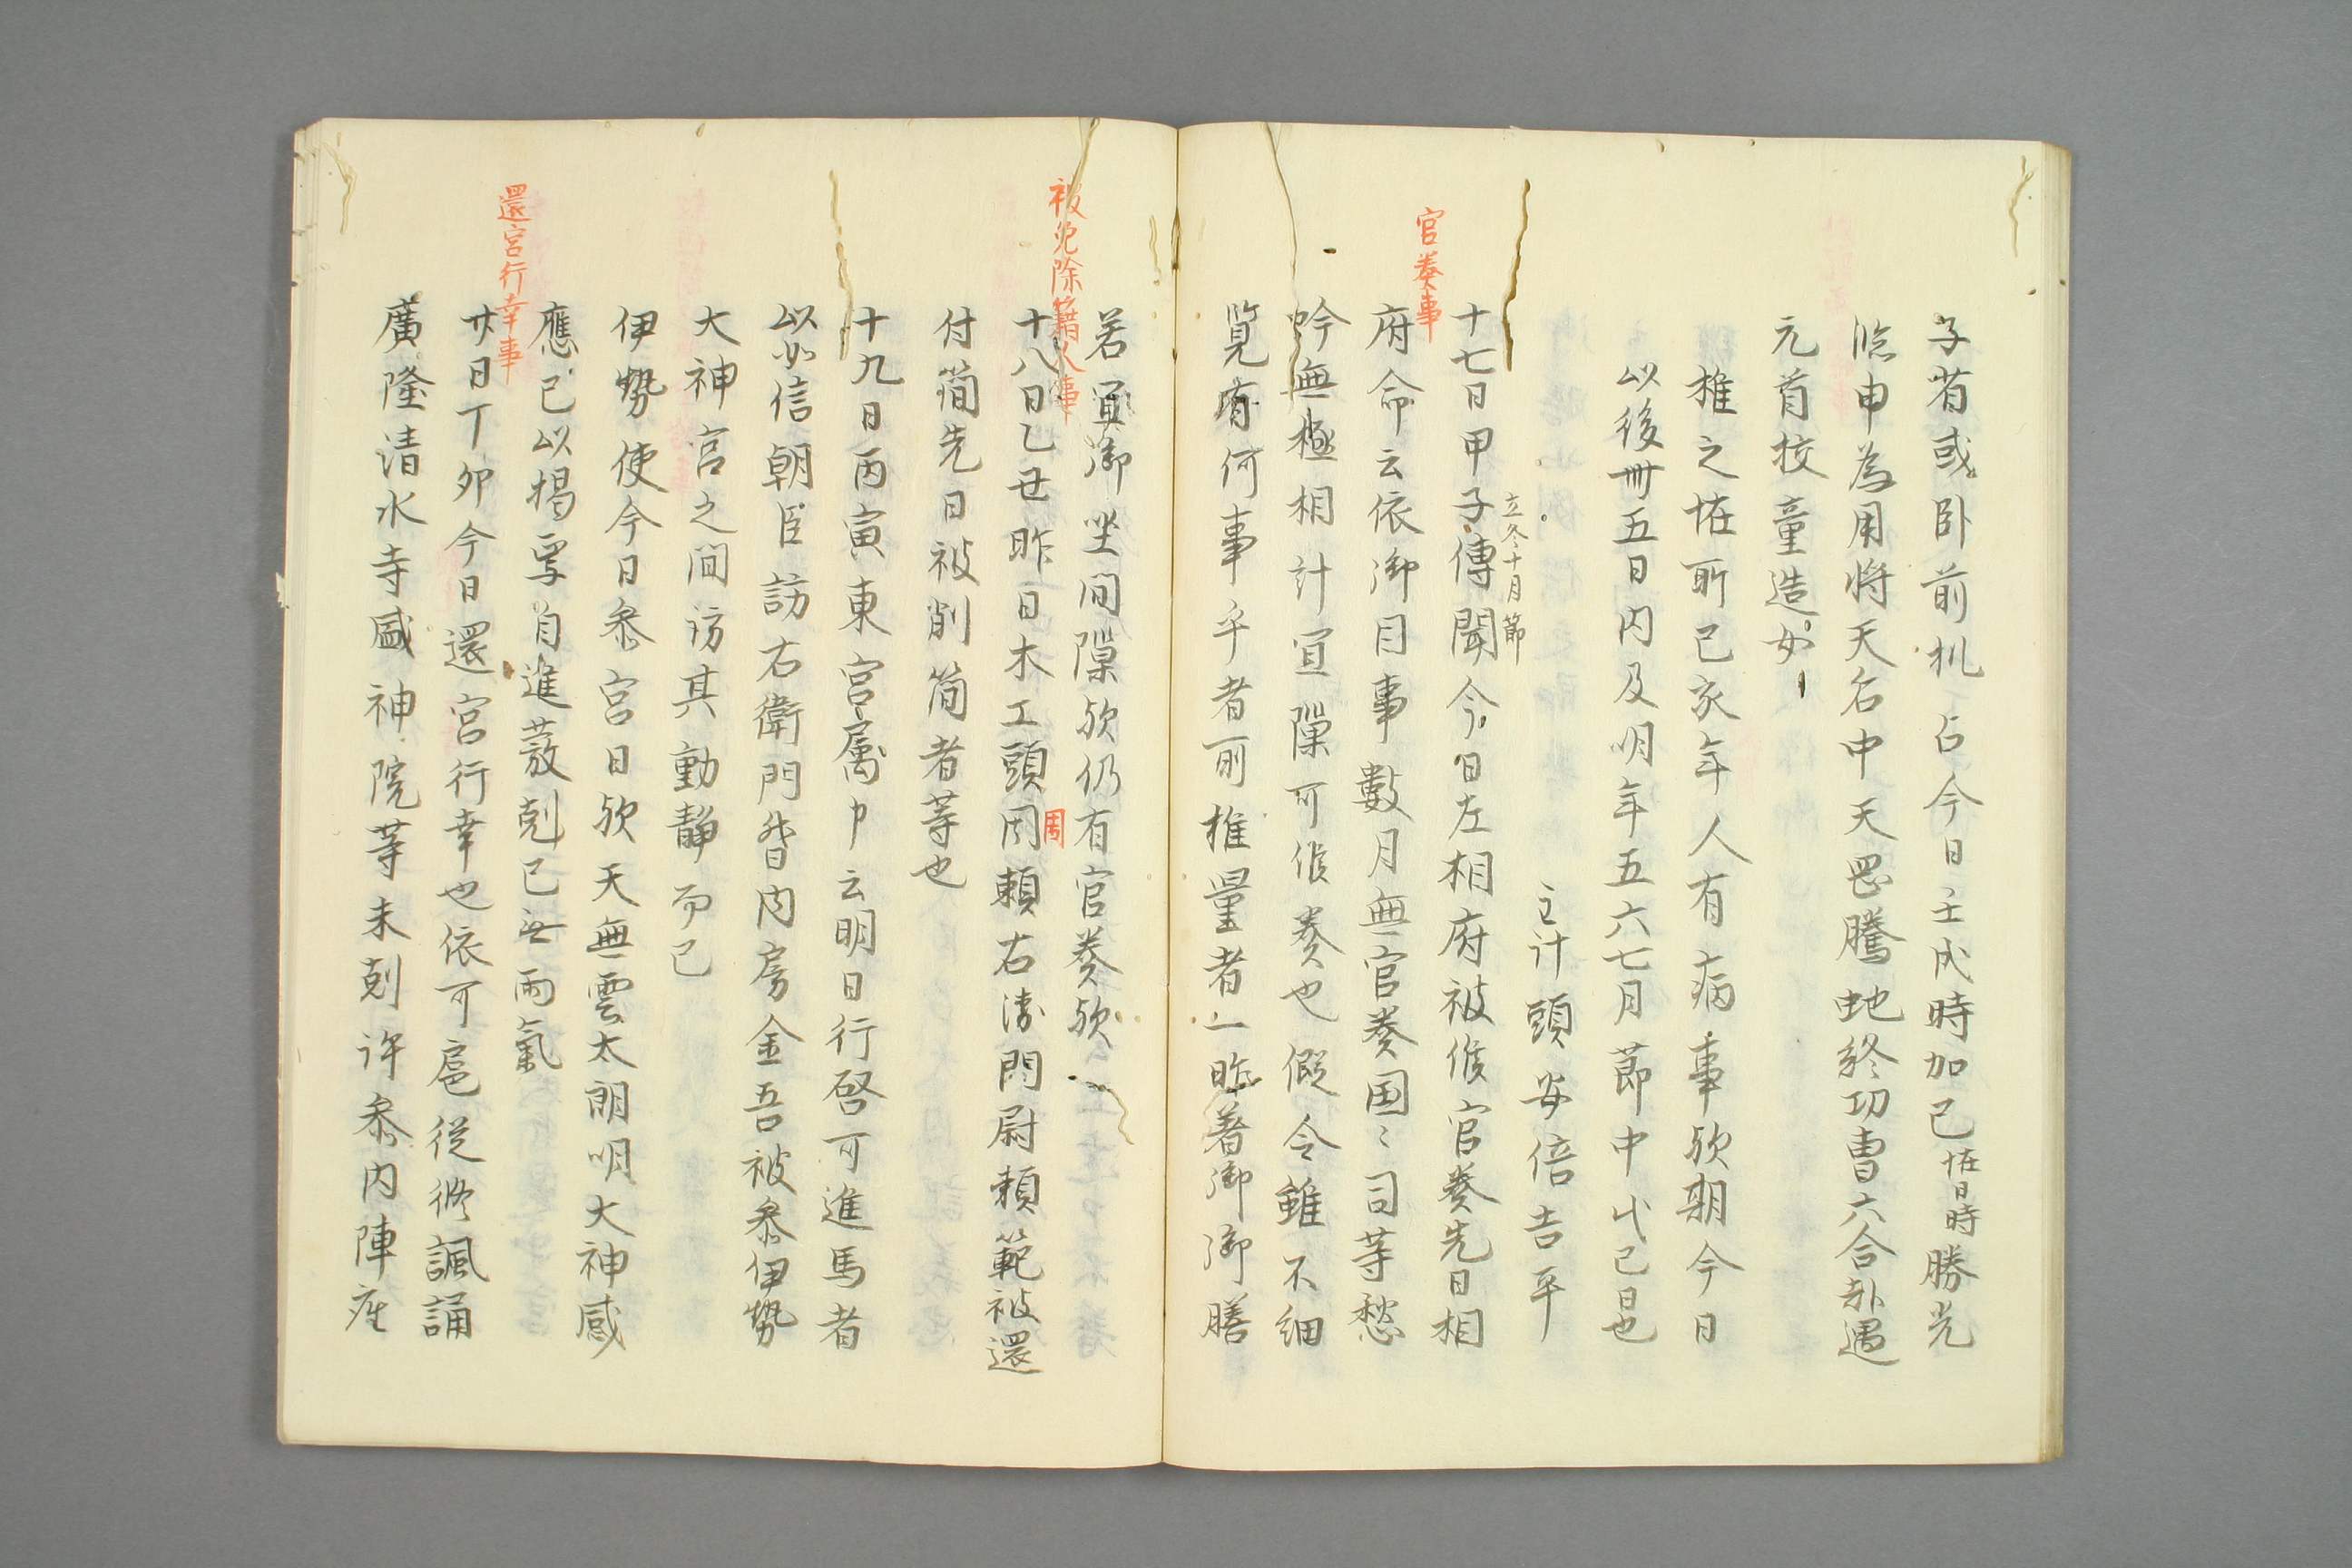 子若或臥前机占今日壬戌時加巳恠日時勝光
臨申為用将天后中天罡騰虵終功曹六合卦遇
元首校童迭女
推之恠所巳亥年人有病事欤期今日
以後卌五日内及明年五六七月節中戊己日也
主計頭安倍吉平
官奏事
十七日甲子立冬十月節傳聞今日左相府被候官奏先日相
府命云依御目事數月無官奏国〻司等愁
吟無極相計宜隟可候奏也假令雖不細
覧有何事乎者所推量者一昨着御御膳
若宜御坐間隟欤仍有官奏欤
被免除籍人事
十八日乙丑昨日木工頭周頼右衛門尉頼範被還
周
付簡先日被削簡者等也
十九日丙寅東宮属申云明日行啓可進馬者
以如信朝臣訪右衛門督内房金吾被参伊勢
大神宮之間訪其動静而已
伊勢使今日参宮日欤天無雲太朗明大神感
應已以掲焉自進發剋已無雨氣
還宮行幸事
廿日丁卯今日還宮行幸也依可扈從修諷誦
廣隆清水寺感神院等未剋許参内陣座